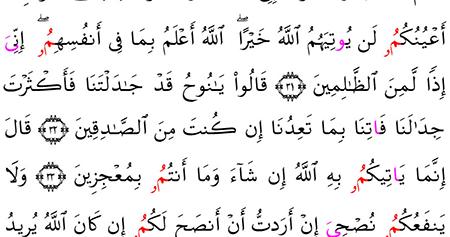 أَعْيُنُكُمُۥ لَن يُوتِيَهُمُ ٱللَّهُ خَيْرًاۖ ٱللَّهُ أَعْلَمُ بِمَا فِى أَنفُسِهِمُۥۖ إِنِّىَ
إِذًا لَّمِنَ ٱلظَّٰلِمِينَ ۝٣١ قَالُوا۟ يَٰنُوحُ قَدْ جَٰدَلْتَنَا فَأَكْثَرْتَ
جِدَٰلَنَا فَاتِنَا بِمَا تَعِدُنَا إِن كُنتَ مِنَ ٱلصَّٰدِقِينَ ۝٣٢ قَالَ
إِنَّمَا يَاتِيكُمُۥ بِهِ ٱللَّهُ إِن شَآءَ وَمَا أَنتُمُۥ بِمُعْجِزِينَ ۝٣٣ وَلَا
يَنفَعُكُمُۥ نُصْحِىَ إِنْ أَرَدتُّ أَنْ أَنصَحَ لَكُمُۥ إِن كَانَ ٱللَّهُ يُرِيدُ